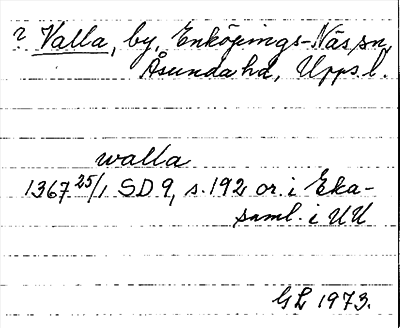 2 Valla, by, Enköpings-Näs sn,
Åsunda hd, Upps. l.
walla
1367 25/1 SD 9, s. 192 or. i Eka-
saml. i UU
GL 1973.